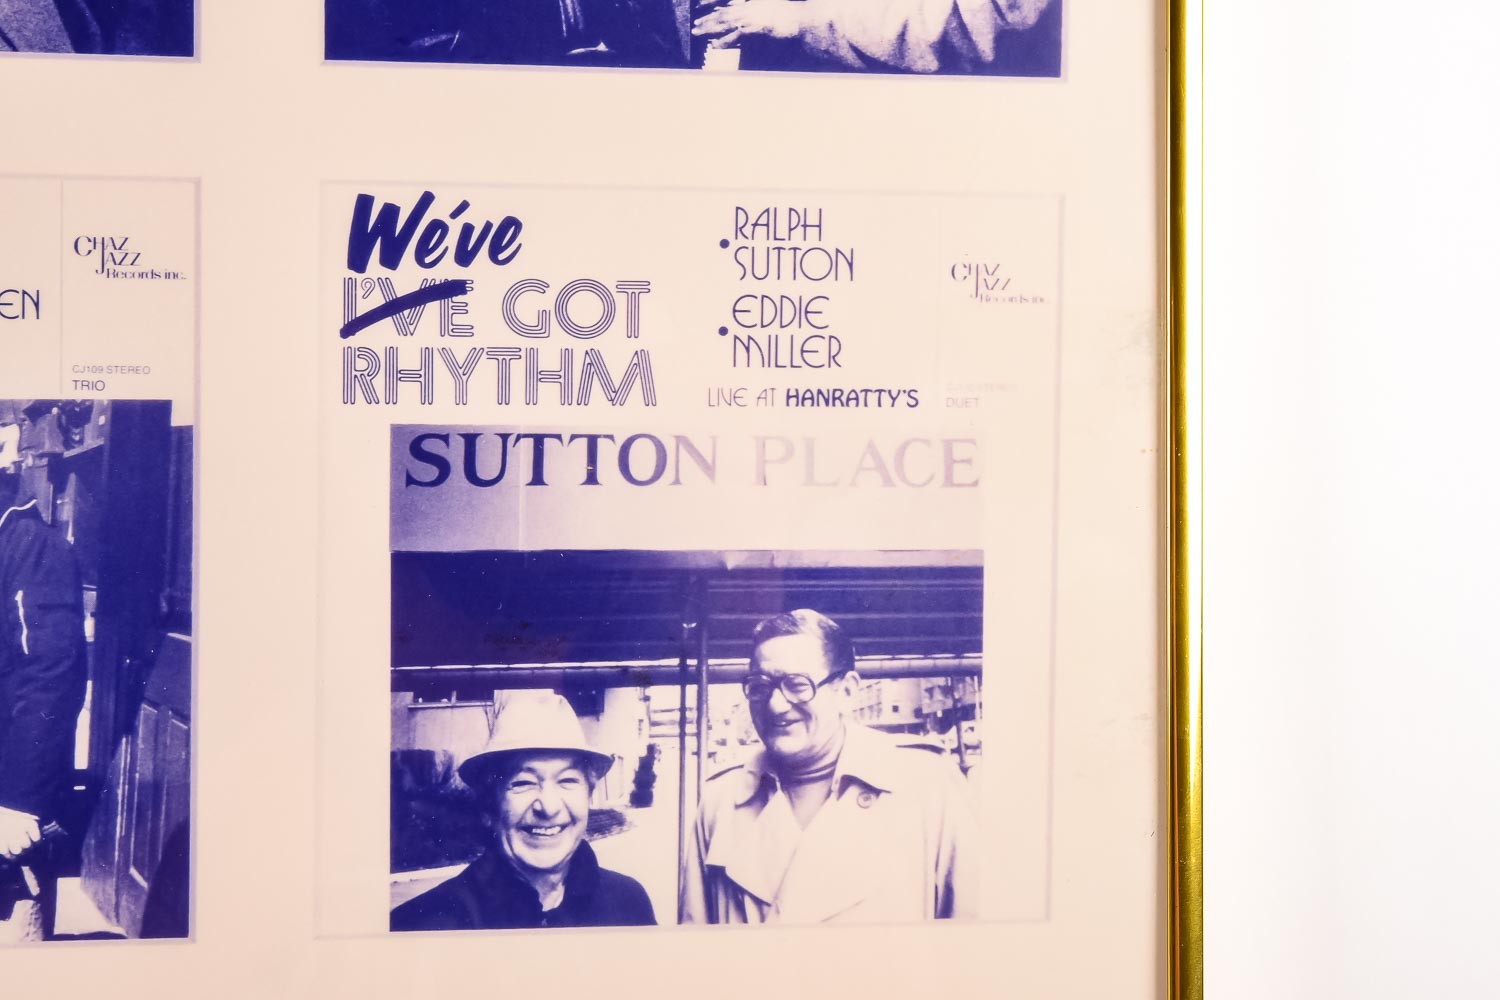 EN
CHAZ
JAZZ
Records inc.
CJ109 STEREO
TRIO
We've
I'VE GOT
RHYTHM
• RALPH
SUTTON
• EDDIE
MILLER
LIVE AT HANRATTY'S
CHAZ
JAZZ
Records inc.
DUET
SUTTON PLACE